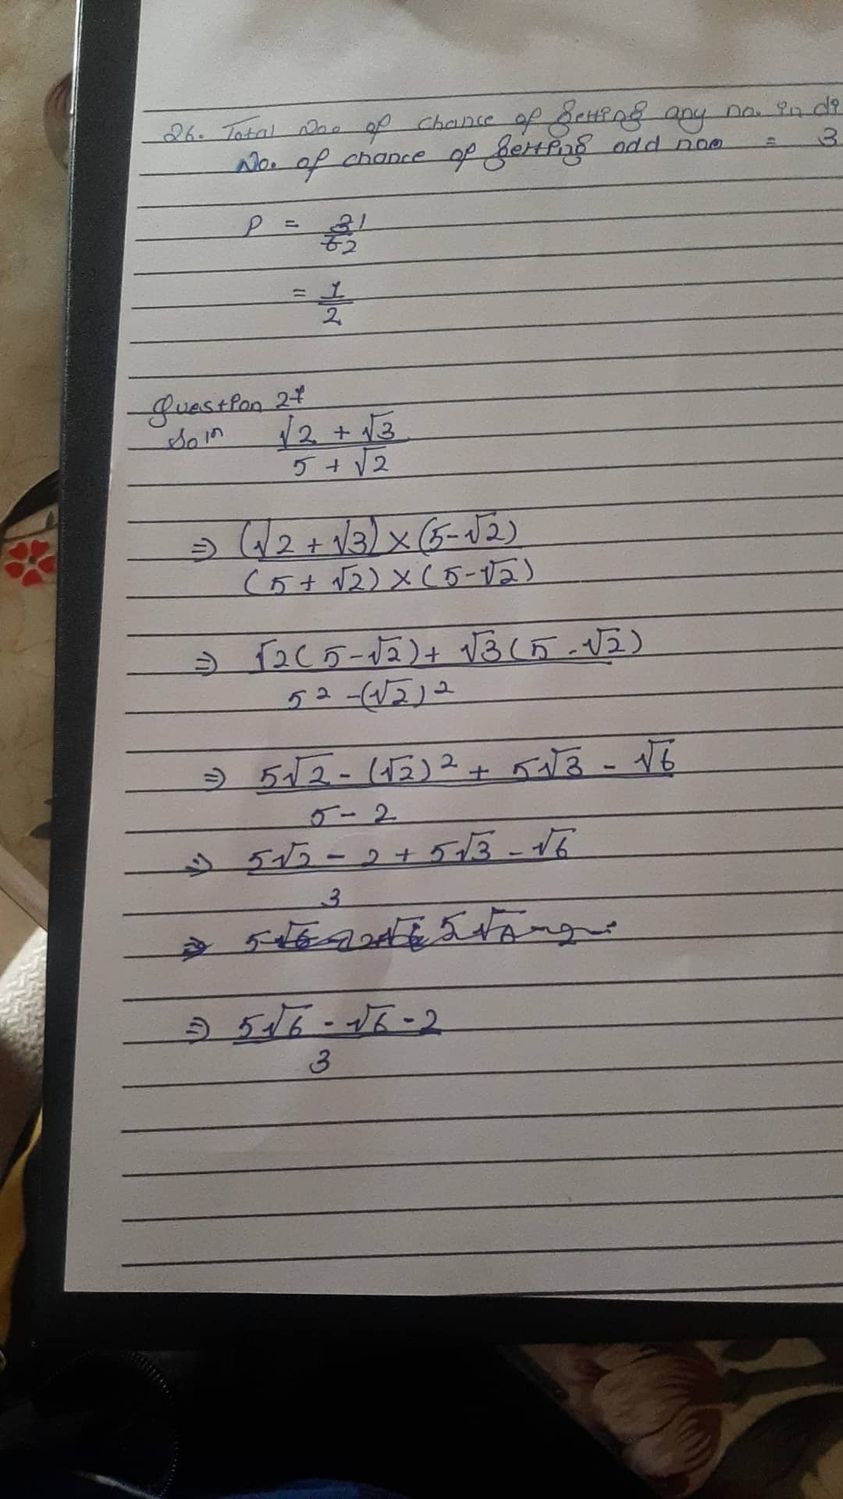 26. Total Noo of chance of getting any no. in di
No. of chance of getting odd noo = 3
P = 3 1 / 6 2
= 1/2
Question 27
Soln √2 + √3 / 5 + √2
⇒ (√2 + √3) × (5-√2) / (5 + √2) × (5-√2)
⇒ √2 (5-√2) + √3 (5-√2) / 5² - (√2)²
⇒ 5√2 - (√2)² + 5√3 - √6 / 5 - 2
⇒ 5√2 - 2 + 5√3 - √6 / 3
⇒ 5√6 - √6 - 2 / 3